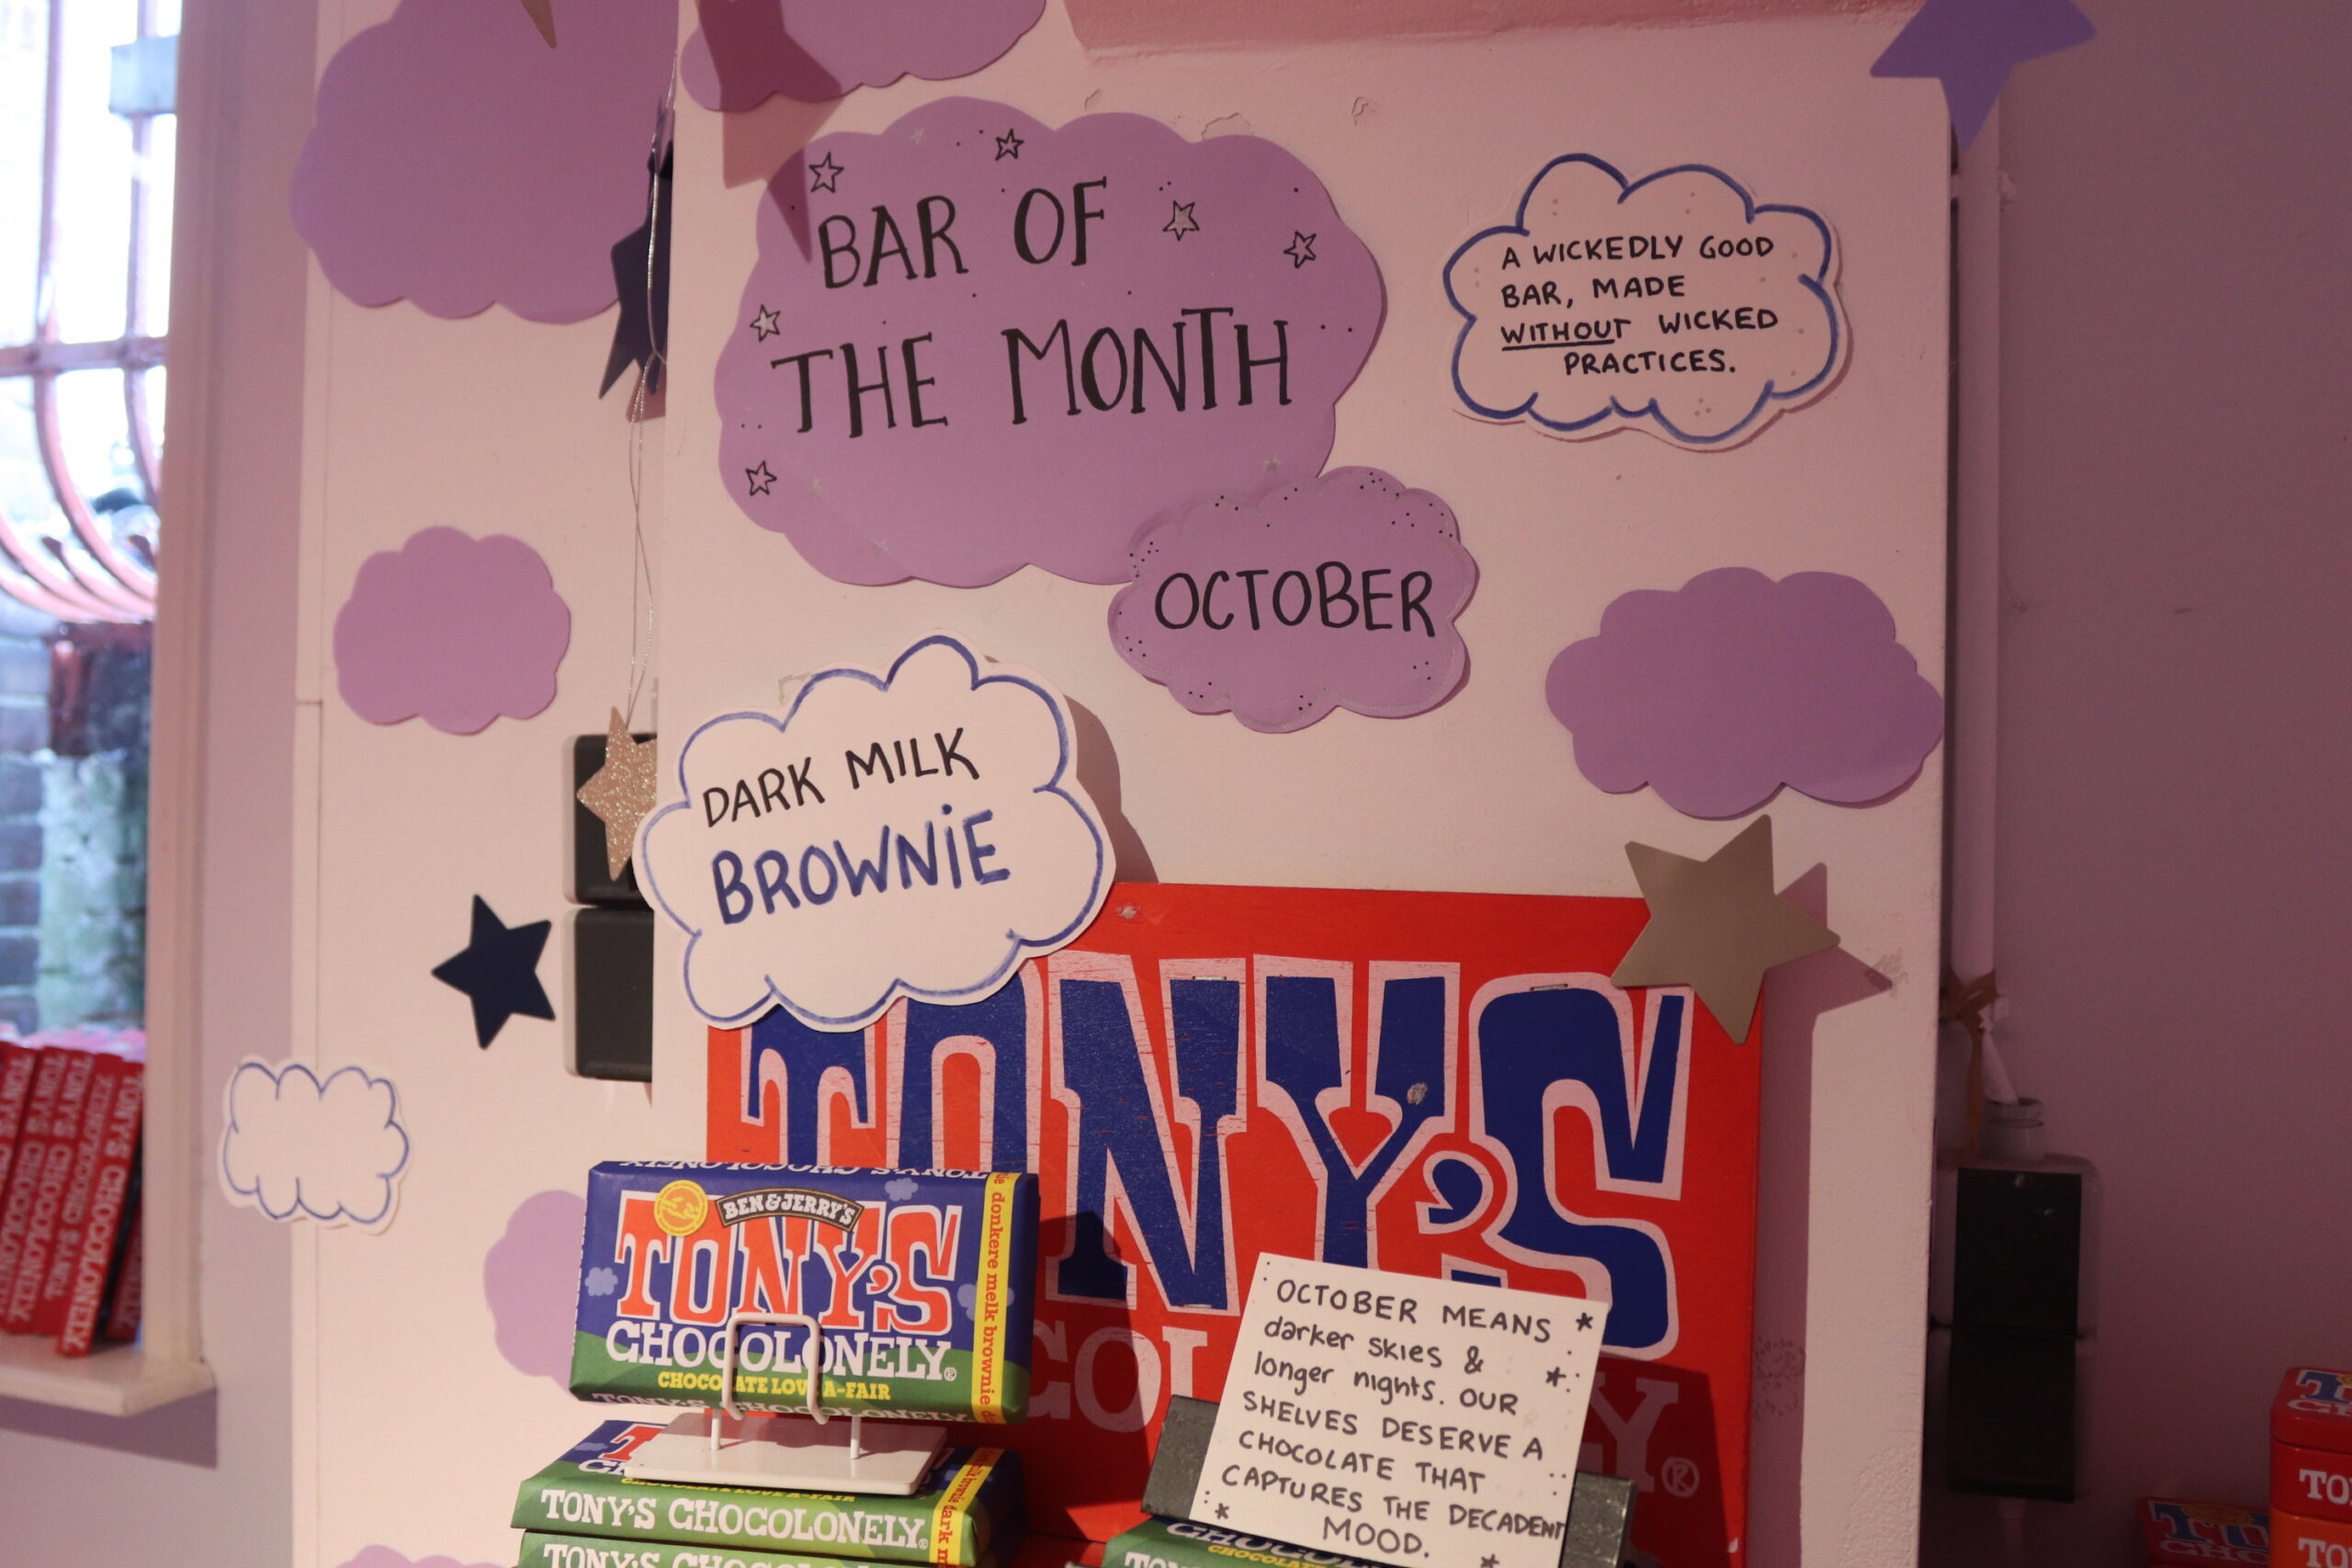 BAR OF
THE MONTH
A WICKEDLY GOOD
BAR, MADE
WITHOUT WICKED
PRACTICES.
OCTOBER
DARK MILK
BROWNiE
TONY'S
BEN & JERRY'S
TONY'S
CHOCOLONELY®
CHOCOLATE LOVE A-FAIR
TONY'S CHOCOLONELY
donkere melk brownie
OCTOBER MEANS
darker skies &
longer nights. OUR
SHELVES DESERVE A
CHOCOLATE THAT
CAPTURES THE DECADENT
MOOD.
TONY'S CHOCOLONELY®
TONY'S CHOCOLONELY
TONY'S CHOCOLONELY
TONY'S CHOCOLONELY